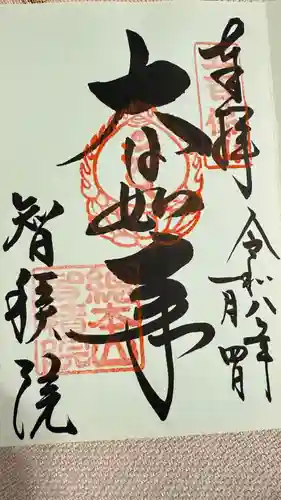 奉拝
令和八年
一月四日
大日如来
智積院
総本山
智積院